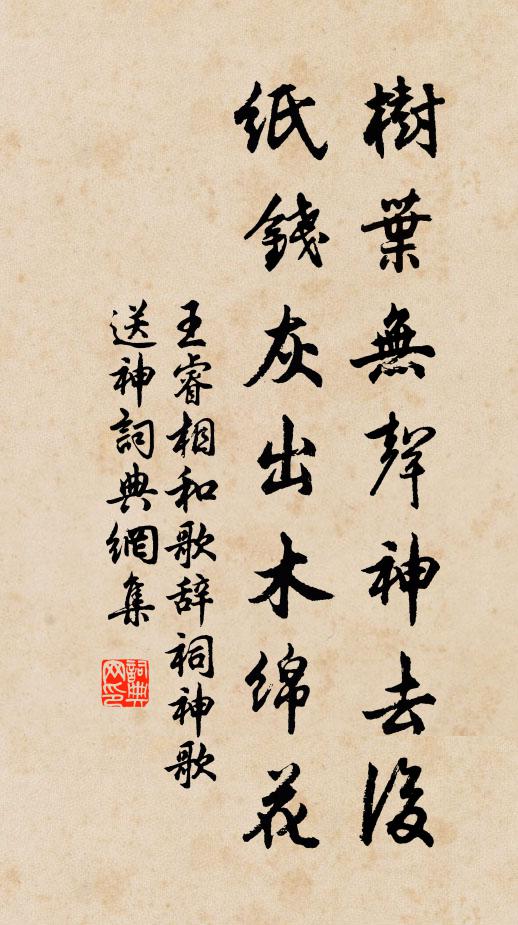 樹葉無聲神去後
紙錢灰出木綿花
王睿相和歌辞祠神歌
送神詞典網集
詞典网印